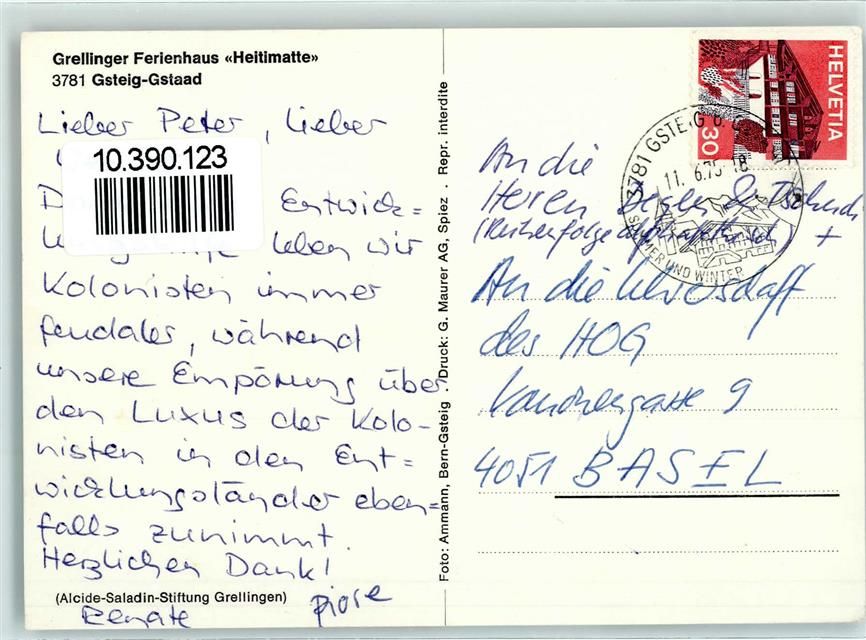 Grellinger Ferienhaus «Heitimatte»
3781 Gsteig-Gstaad
Lieber Peter, lieber
10.390.123
Entwick=
leben wir
Kolonisten immer
feudaler, während
unsere Empörung über
den Luxus der Kolo-
nisten in den Ent=
wicklungsländer eben=
falls zunimmt.
Herzlichen Dank!
(Alcide-Saladin-Stiftung Grellingen)
Renate
Foto: Ammann, Bern-Gsteig . Druck: G. Maurer AG, Spiez . Repr. interdite
HELVETIA
30
3781 GSTEIG b. G
11. 6.75-18
SOMMER UND WINTER
An die
Herren
(Reihenfolge alphabetisch) +
An die
des HOG
9
4051 BASEL